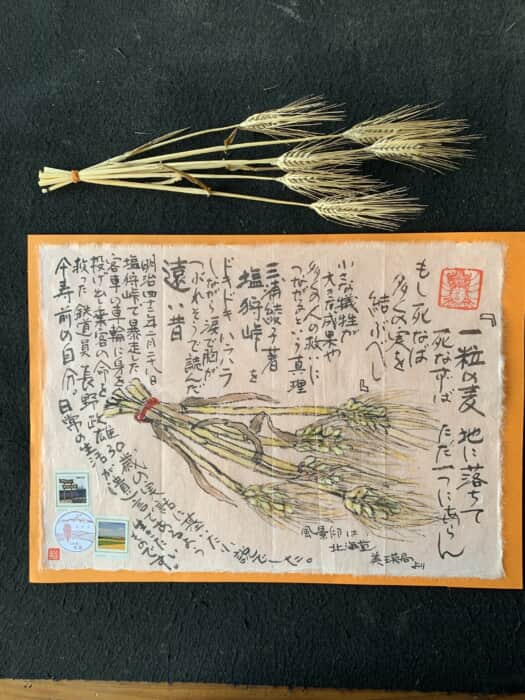 『一粒の麦 地に落ちて
死なずば ただ一つにあらん
もし死なば
多くの実を
結ぶべし』
小さな犠牲が
大きな成果や
多くの人の救いに
つながるという真理
三浦綾子著
塩狩峠 を
ドキドキ ハラハラ
しながら涙で胸が
つぶれそうで読んだ
遠い昔
明治四十二年二月二八日
塩狩峠で暴走した
客車の車輪に身を
投げ出し乗客の命を
救った 鉄道員 長野政雄30歳の実話に基いた
今寿前の自分。日常の生活が遺言であるよう
風景印は
北海道
美瑛局より